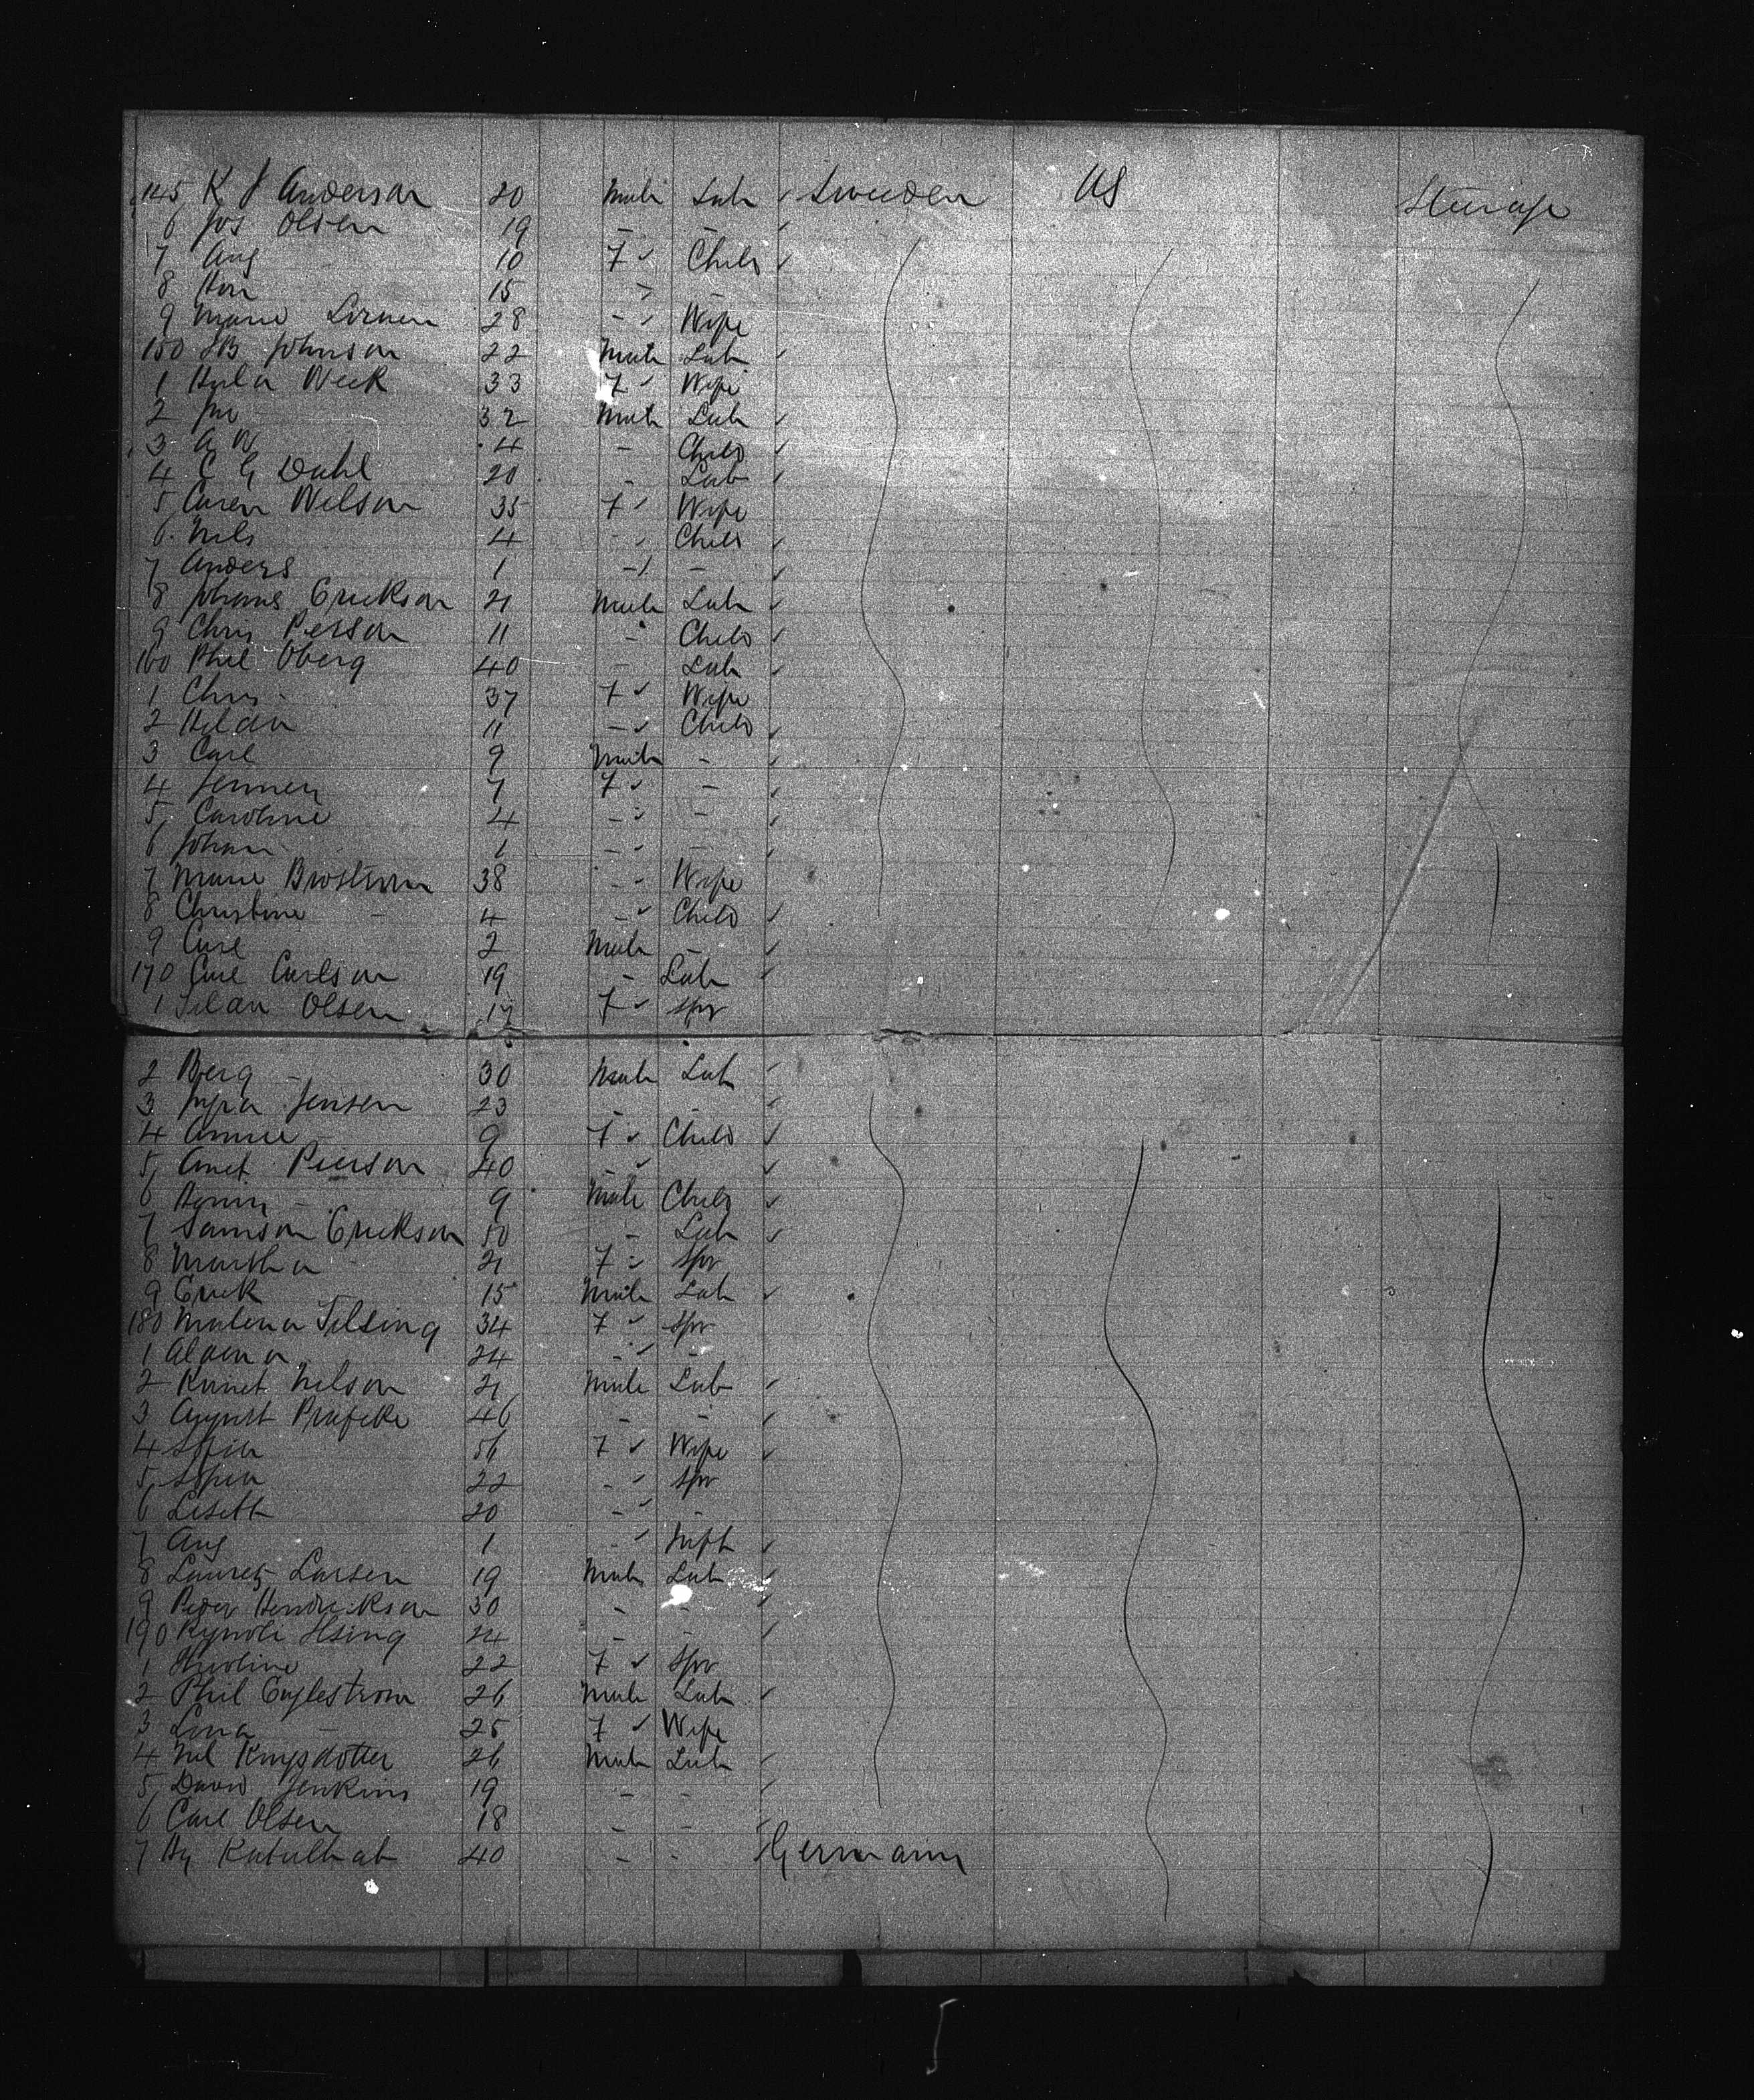 145 K J Anderson 20 Male Lab ✓ Sweden US Steerage
6 Jos Olsen 19 - - ✓
7 Aug 10 F ✓ Child ✓
8 15 - -
9 Marie 28 - ✓ Wife
150 JB Johnson 22 Male Lab ✓
1 Hulda Week 33 F ✓ Wife
2 Jno 32 Male Lab ✓
3 A W 4 - Child ✓
4 C G Dahl 20 - Lab ✓
5 Caren Nilson 35 F ✓ Wife
6 Nils 4 - ✓ Child ✓
7 Anders 1 - ✓ - ✓
8 Johans Erickson 21 Male Lab ✓
9 Chris Person 11 - Child ✓
160 Phil Oberg 40 - Lab ✓
1 Chris - 37 F ✓ Wife
2 Hilda 11 - ✓ Child ✓
3 Carl 9 Male - ✓
4 Jenney 7 F ✓ - ✓
5 Caroline 4 - ✓ - ✓
6 Johan 1 - ✓ - ✓
7 Marie Brostrom 38 - ✓ Wife
8 Christine - 4 - ✓ Child ✓
9 Carl 2 Male - ✓
170 Carl Carlson 19 - Lab ✓
1 Olsen 17 F ✓ Spr
2 Berg - 30 Male Lab ✓
3 Jensen 23 - - ✓
4 Annie 9 F ✓ Child ✓
5 Pierson 40 - ✓ ✓
6 Henry - 9 Male Child ✓
7 Samson Erickson 50 - Lab ✓
8 Martha 21 F ✓ Spr
9 Erick 15 Male Lab ✓
180 Malena Tilsing 34 F ✓ Spr
1 24 - ✓ -
2 Nilson 21 Male Lab ✓
3 August 46 - - ✓
4 Sofia 56 F ✓ Wife ✓
5 Sofia 22 - ✓ Spr
6 Lisett 20 - ✓ -
7 Aug 1 - ✓ Inft ✓
8 Lauretz Larsen 19 Male Lab ✓
9 Peder Hendrickson 30 - - ✓
190 24 - - ✓
1 22 F ✓ Spr
2 Phil Englestrom 26 Male Lab ✓
3 Lina - 25 F ✓ Wife
4 Nil 26 Male Lab ✓
5 David Jenkins 19 - - ✓
6 Carl Olsen 18 - - ✓
7 Hy 40 - - Germann